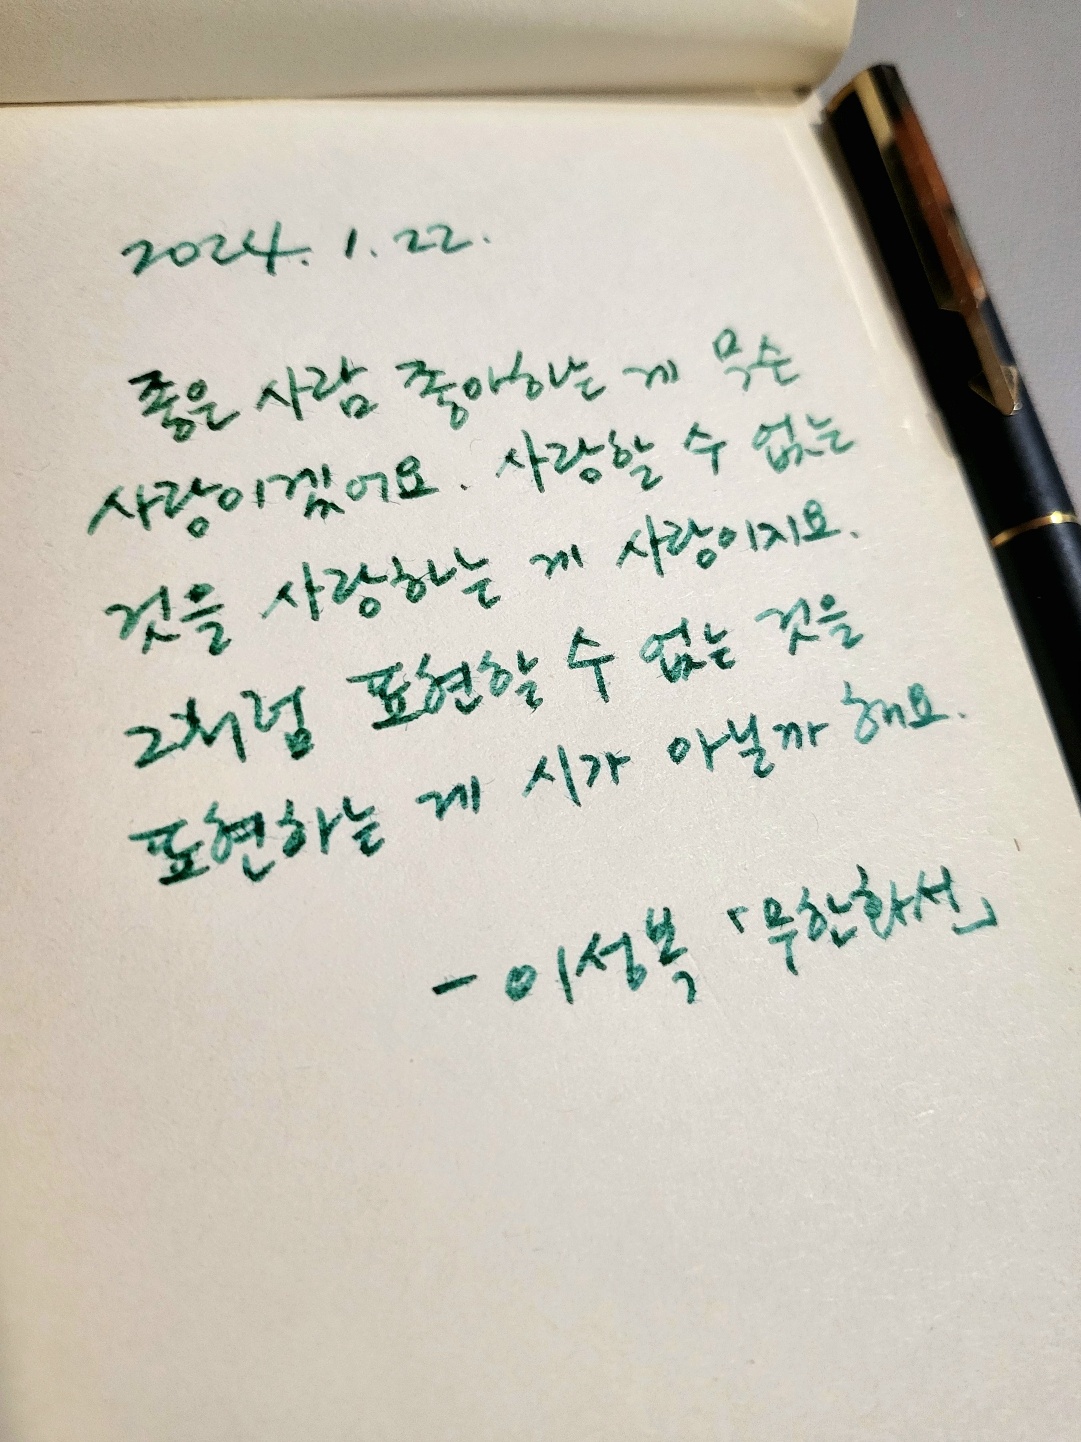 2024. 1. 22.
좋은 사람 좋아하는 게 무슨
사랑이겠어요. 사랑할 수 없는
것을 사랑하는 게 사랑이지요.
그처럼 표현할 수 없는 것을
표현하는 게 시가 아닐까 해요.
- 이성복 「무한화서」